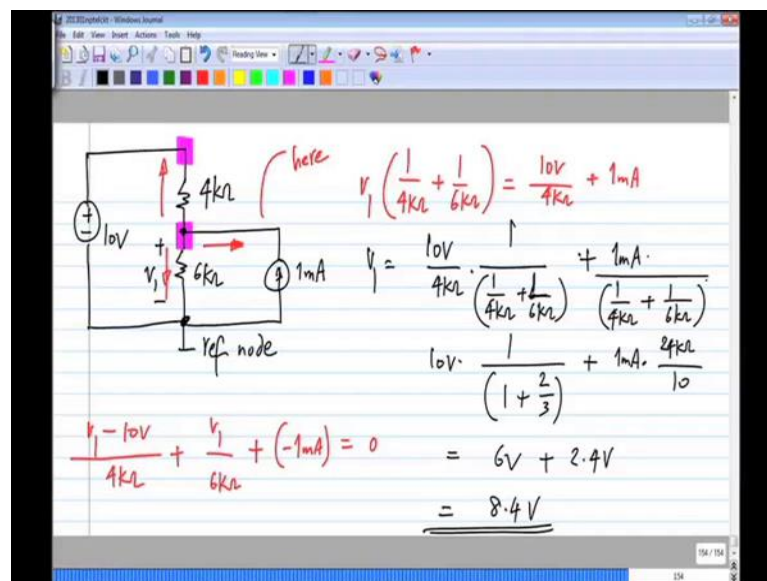 20130nptel.jnt - Windows Journal
File Edit View Insert Actions Tools Help
Reading View
B I
here
4kΩ
+
-
10V
+
V₁
-
6kΩ
1mA
ref node
V₁ (1/4kΩ + 1/6kΩ) = 10V/4kΩ + 1mA
V₁ = 10V/4kΩ · 1/(1/4kΩ + 1/6kΩ) + 1mA·/(1/4kΩ + 1/6kΩ)
10V· 1/(1 + 2/3) + 1mA· 24kΩ/10
= 6V + 2.4V
= 8.4V
V₁ - 10V/4kΩ + V₁/6kΩ + (-1mA) = 0
154 / 154
154